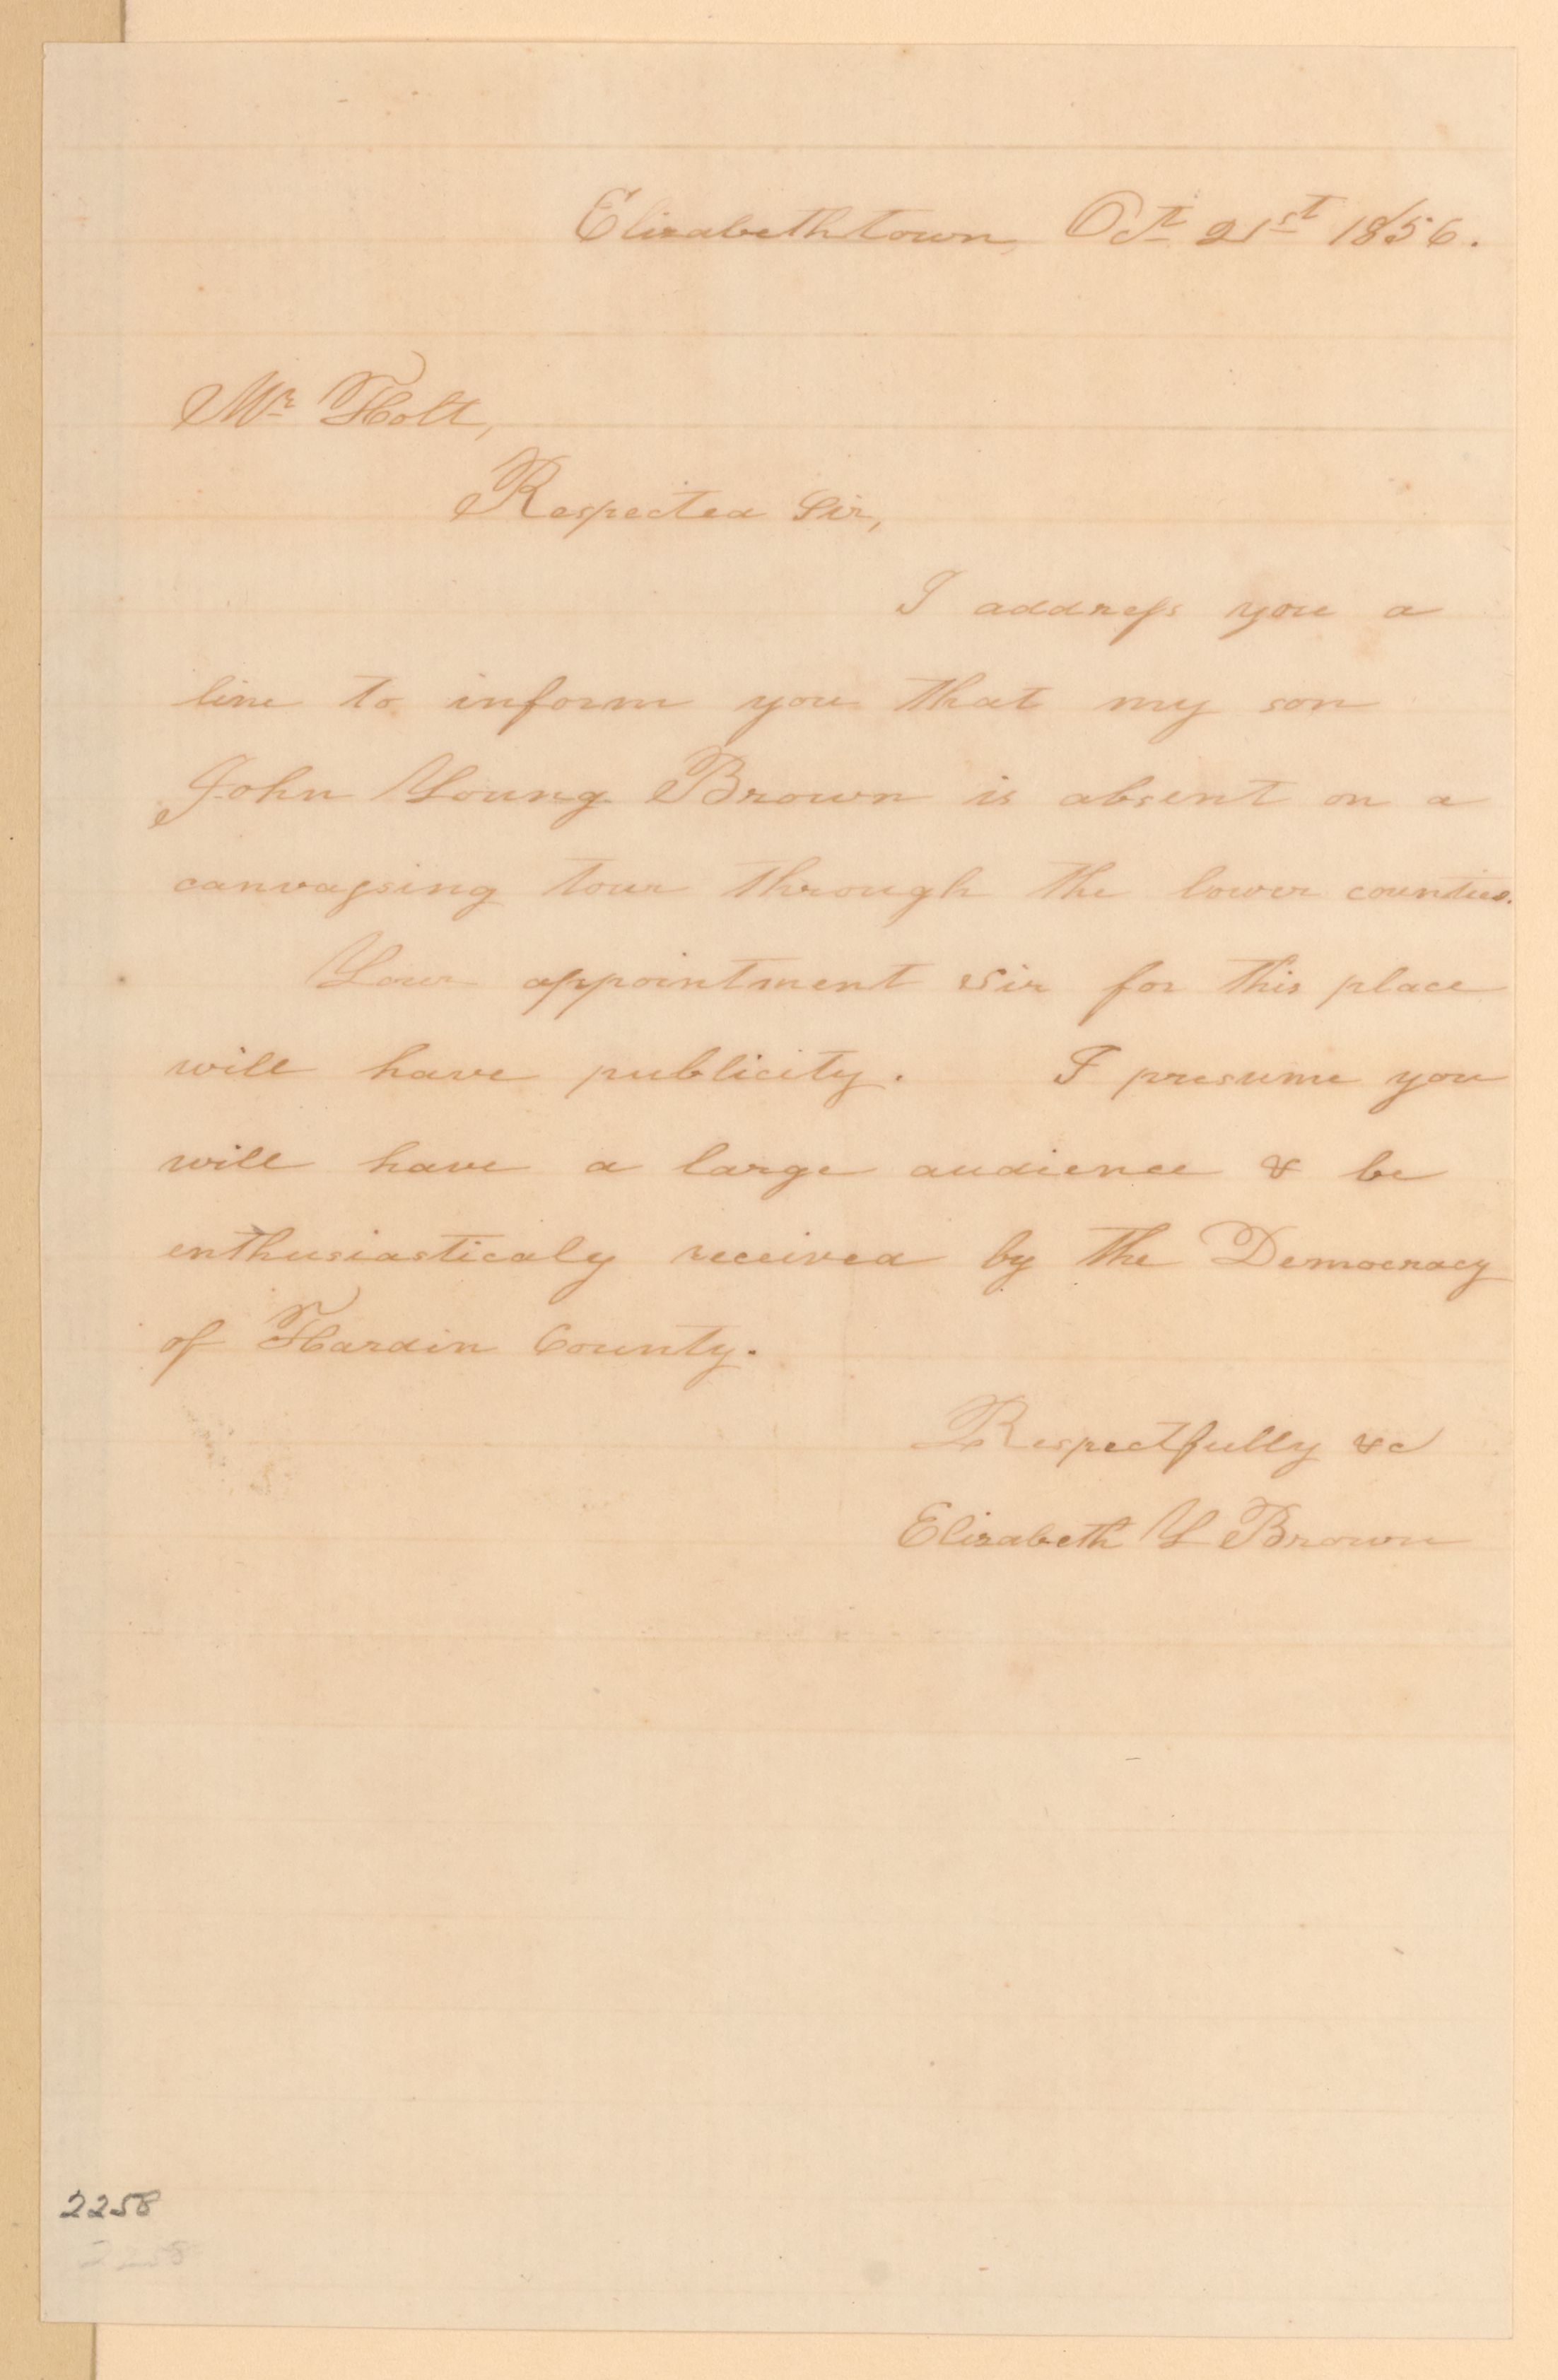 Elizabethtown, Oct 21st 1856.
Mr Holt,
Respected Sir,
I address you a
line to inform you that my son
John Young Brown is absent on a
canvassing tour through the lower counties.
Your appointment Sir for this place
will have publicity. I presume you
will have a large audience & be
enthusiasticaly received by the Democracy
of Hardin County.
Respectfully &c
Elizabeth Y Brown
2258